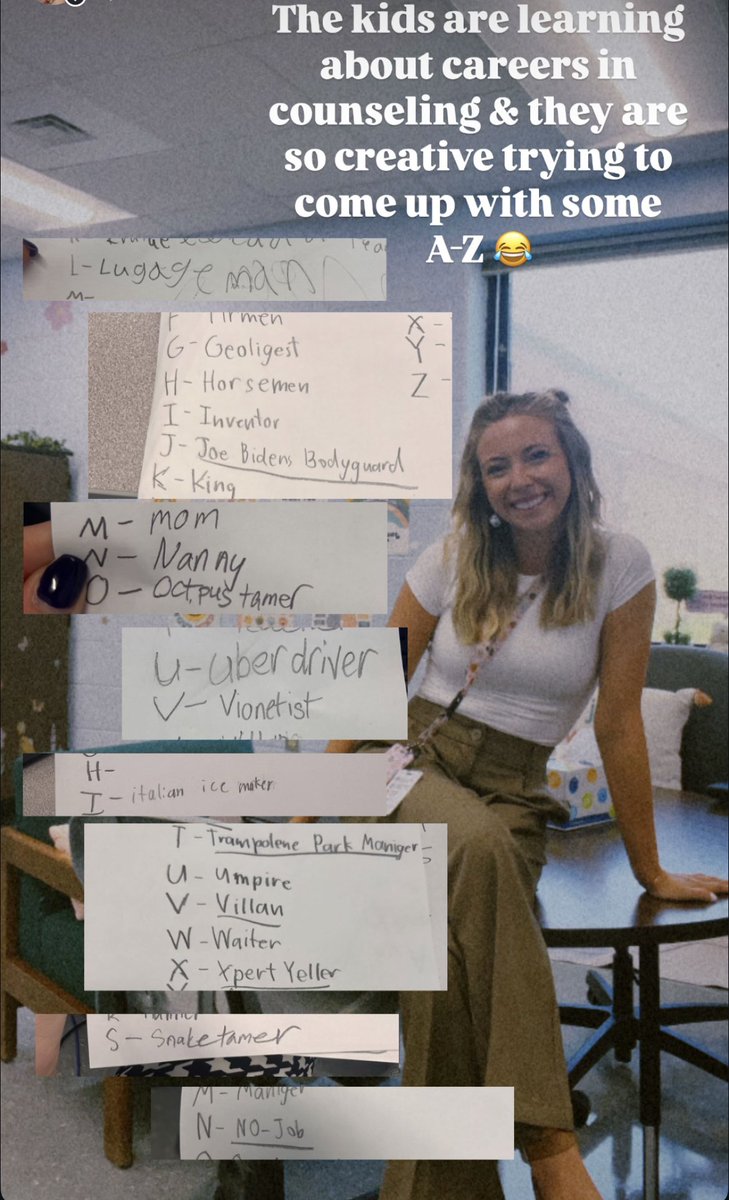 The kids are learning
about careers in
counseling & they are
so creative trying to
come up with some
A-Z 😂
L-Lugage man
M-
F Firmen
G-Geoligest
H-Horsemen
I-Inventor
J-Joe Bidens Bodyguard
K-King
X-
Y-
Z-
M-mom
N-Nanny
O-Octpus tamer
U-uber driver
V-Vionetist
H-
I-italian ice maker
T-Trampolene Park Maniger
U-Umpire
V-Villan
W-Waiter
X-Xpert Yeller
S-Snake tamer
M-Maniger
N-NO-Job